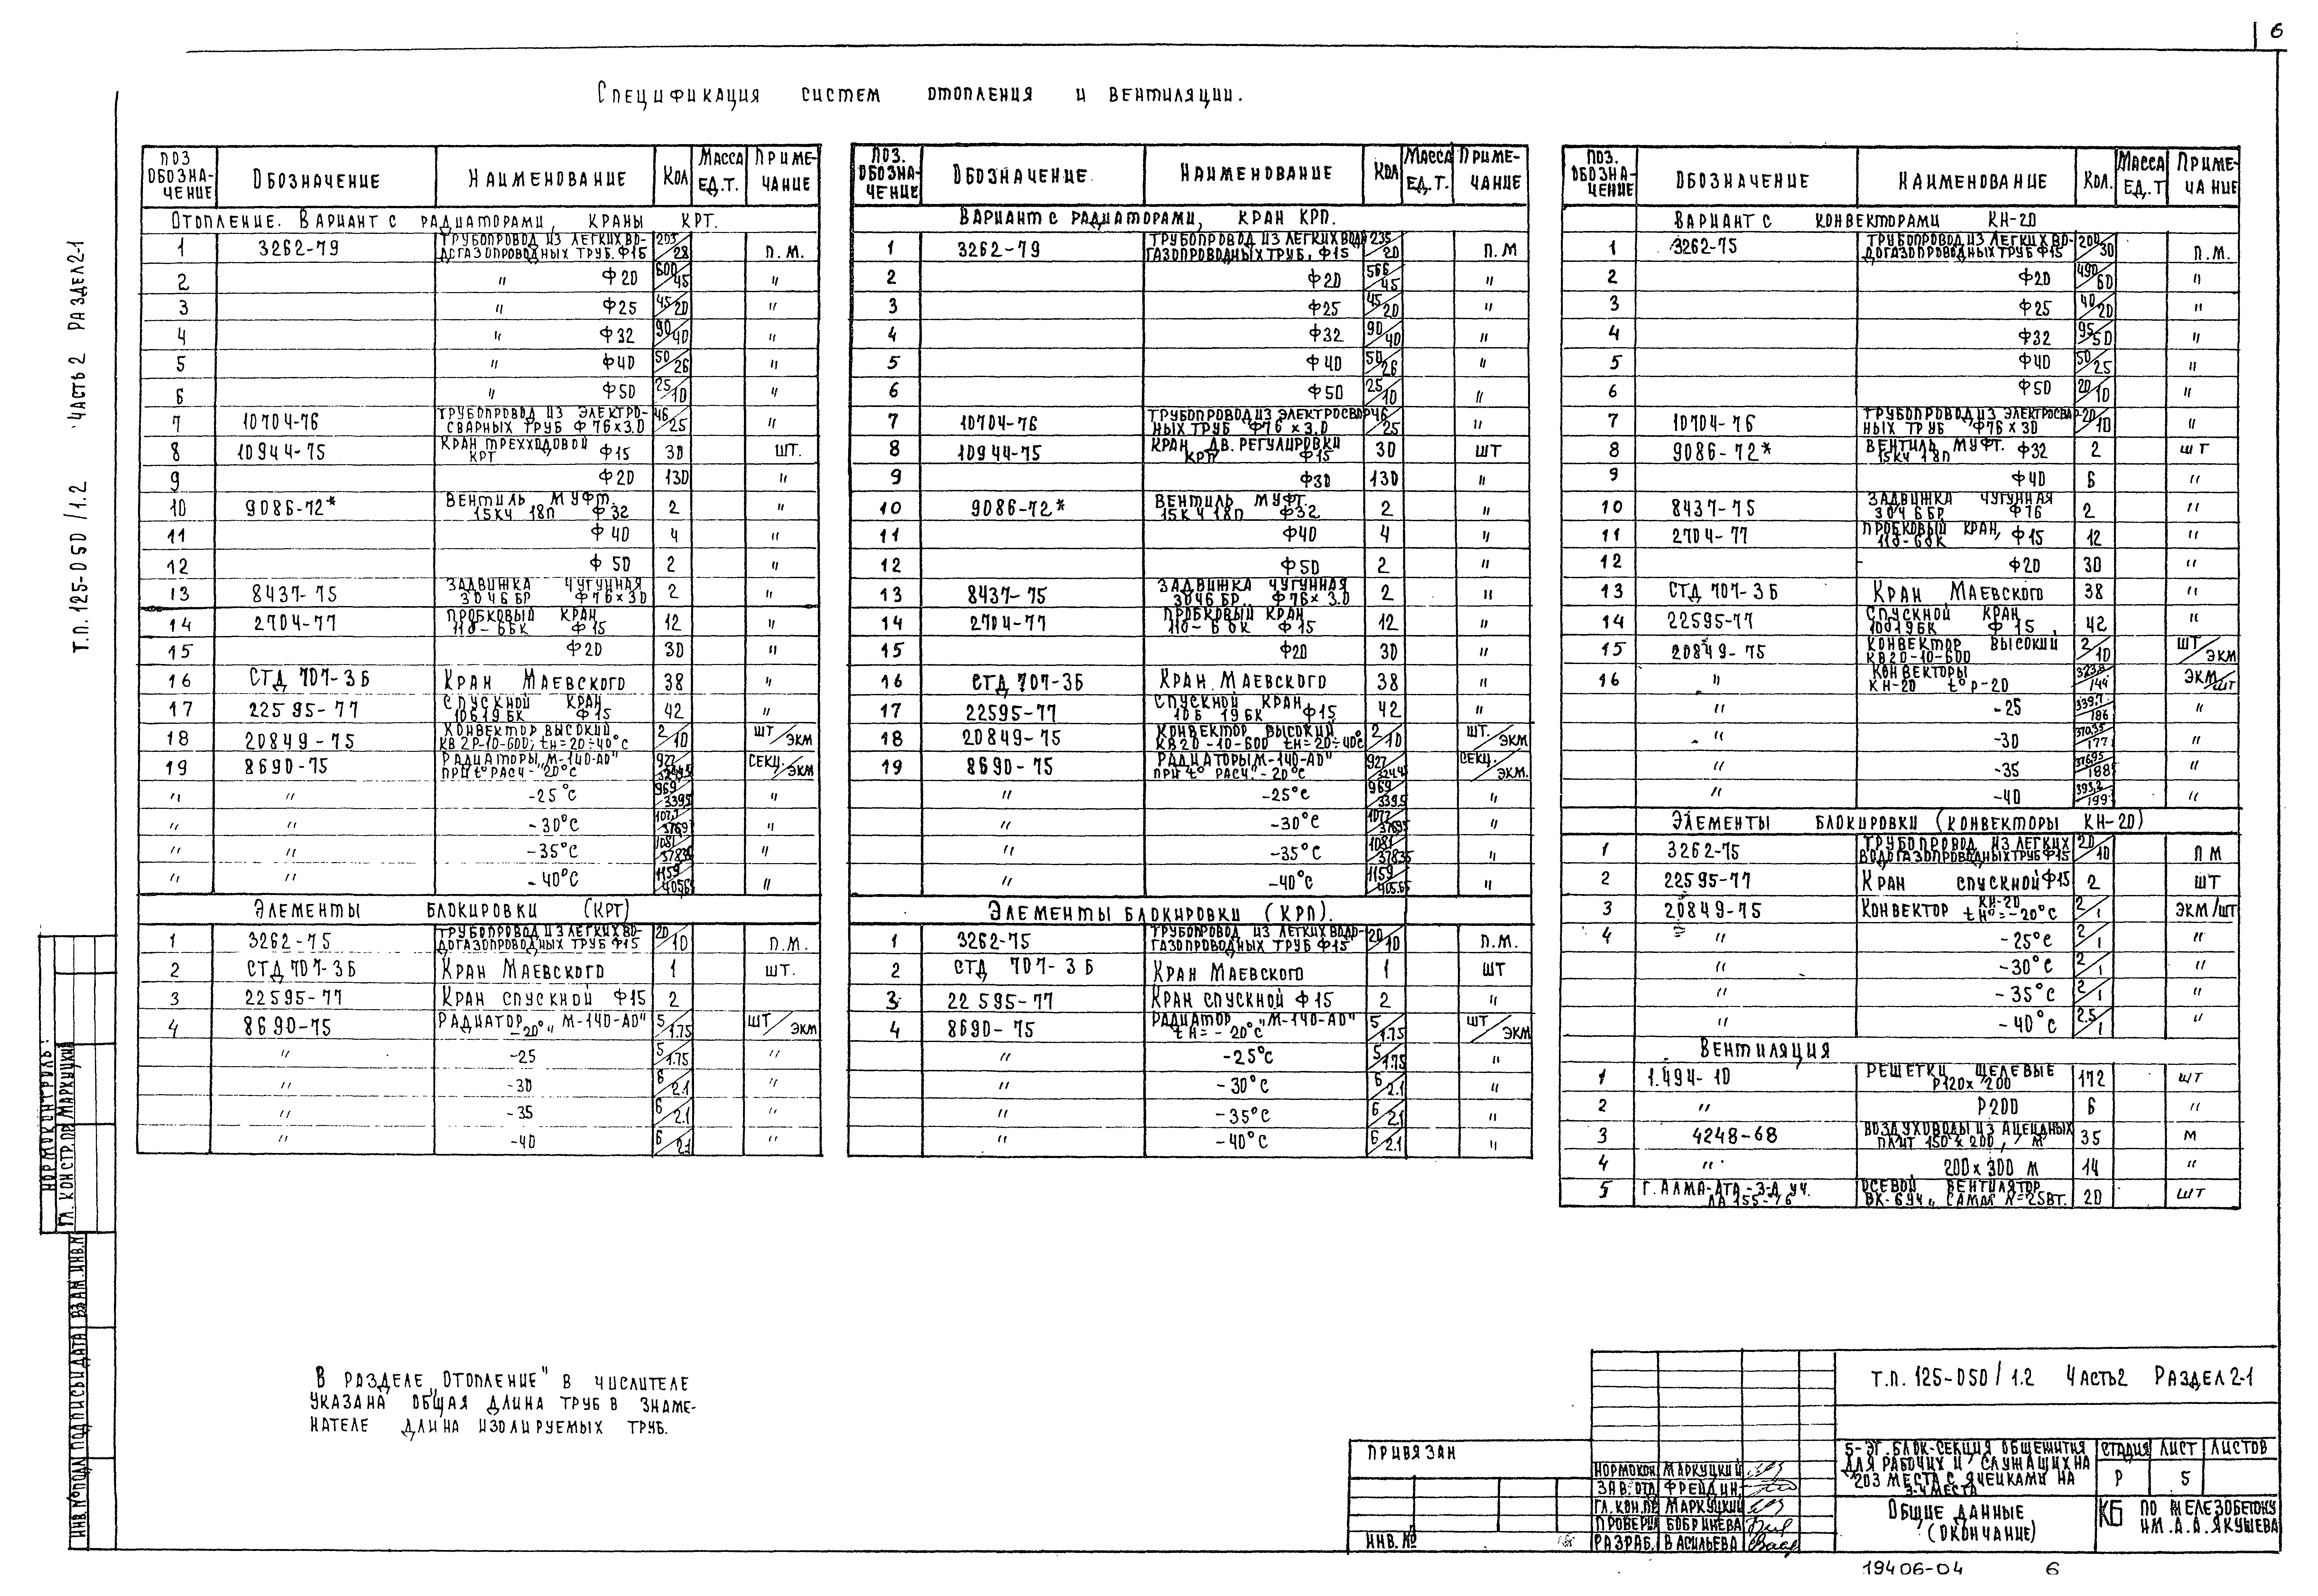 6
Спецификация систем отопления и вентиляции.
Т.П. 125-050/1.2 Часть 2 Раздел 2-1
ПОЗ ОБОЗНА-ЧЕНИЕ Обозначение Наименование Кол Масса ЕД.Т. ПРИМЕ-ЧАНИЕ
Отопление. Вариант с радиаторами, краны КРТ.
1 3262-79 ТРУБОПРОВОД ИЗ ЛЕГКИХ ВО-ДОГАЗОПРОВОДНЫХ ТРУБ. Ф15 205/28 П.М.
2 " Ф20 600/45 "
3 " Ф25 45/20 "
4 " Ф32 90/40 "
5 " Ф40 50/26 "
6 " Ф50 25/10 "
7 10704-76 ТРУБОПРОВОД ИЗ ЭЛЕКТРО-СВАРНЫХ ТРУБ Ф 76х3.0 46/25 "
8 10944-75 КРАН ТРЕХХОДОВОЙ КРТ Ф15 30 ШТ.
9 Ф20 130 "
10 9086-72* ВЕНТИЛЬ МУФТ. 15КЧ 18П Ф32 2 "
11 Ф40 4 "
12 Ф50 2 "
13 8437-75 ЗАДВИЖКА ЧУГУННАЯ 30Ч6БР Ф76х30 2 "
14 2704-77 ПРОБКОВЫЙ КРАН 11б-6БК Ф15 12 "
15 Ф20 30 "
16 СТД 707-3Б Кран Маевского 38 "
17 22595-77 СПУСКНОЙ КРАН 10Б19БК Ф15 42 "
18 20849-75 КОНВЕКТОР ВЫСОКИЙ КВ 20-10-600; tн=20÷40°С 2/10 ШТ/ЭКМ
19 8690-75 РАДИАТОРЫ „М-140-АО" ПРИ t° РАСЧ -20°С 927 СЕКЦ./ЭКМ
" " -25°С 969/339.5 "
" " -30°С 1077/376.9 "
" " -35°С 1081/378.35 "
" " -40°С 1159/405.65 "
Элементы блокировки (КРТ)
1 3262-75 ТРУБОПРОВОД ИЗ ЛЕГКИХ ВО-ДОГАЗОПРОВОДНЫХ ТРУБ Ф15 20/10 П.М.
2 СТД 707-3Б Кран Маевского 1 ШТ.
3 22595-77 Кран спускной Ф15 2
4 8690-75 РАДИАТОР -20° „М-140-АО" 5/1.75 ШТ/ЭКМ
" -25 5/1.75 "
" -30 6/2.1 "
" -35 6/2.1 "
" -40 6/2.1 "
ПОЗ. ОБОЗНА-ЧЕНИЕ Обозначение Наименование Кол Масса ЕД.Т. ПРИМЕ-ЧАНИЕ
Вариант с радиаторами, кран КРП.
1 3262-79 ТРУБОПРОВОД ИЗ ЛЕГКИХ ВОДО ГАЗОПРОВОДНЫХ ТРУБ, Ф15 235/20 П.М
2 Ф20 566/45 "
3 Ф25 45/20 "
4 Ф32 90/40 "
5 Ф40 50/26 "
6 Ф50 25/10 "
7 10704-76 ТРУБОПРОВОД ИЗ ЭЛЕКТРОСВАР НЫХ ТРУБ Ф76 х 3.0 46/25 "
8 10944-75 КРАН ДВ. РЕГУЛИРОВКИ КРП Ф15 30 ШТ
9 Ф30 130 "
10 9086-72* ВЕНТИЛЬ МУФТ. 15КЧ 18П Ф32 2 "
11 Ф40 4 "
12 Ф50 2 "
13 8437-75 ЗАДВИЖКА ЧУГУННАЯ 30Ч6БР. Ф76х3.0 2 "
14 2704-77 ПРОБКОВЫЙ КРАН 11б-6бК Ф15 12 "
15 Ф20 30 "
16 СТД 707-3Б Кран Маевского 38 "
17 22595-77 СПУСКНОЙ КРАН 10Б 19БК Ф15 42 "
18 20849-75 КОНВЕКТОР ВЫСОКИЙ КВ20-10-600 tн=20÷40°С 2/10 ШТ./ЭКМ
19 8690-75 РАДИАТОРЫ „М-140-АО" ПРИ t° РАСЧ. -20°С 927 СЕКЦ./ЭКМ.
" -25°С 969/339.5 "
" -30°С 1077/376.95 "
" -35°С 1081/378.35 "
" -40°С 1159/405.65 "
Элементы блокировки (КРП).
1 3262-75 ТРУБОПРОВОД ИЗ ЛЕГКИХ ВОДО-ГАЗОПРОВОДНЫХ ТРУБ Ф15 20/10 П.М.
2 СТД 707-3Б Кран Маевского 1 ШТ
3 22595-77 Кран спускной Ф15 2 "
4 8690-75 РАДИАТОР „М-140-АО" tн=-20°С 5/1.75 ШТ/ЭКМ
" -25°С 5/1.75 "
" -30°С 6/2.1 "
" -35°С 6/2.1 "
" -40°С 6/2.1 "
ПОЗ. ОБОЗНА-ЧЕНИЕ Обозначение Наименование Кол. Масса ЕД.Т ПРИМЕ-ЧАНИЕ
Вариант с конвекторами КН-20
1 3262-75 ТРУБОПРОВОД ИЗ ЛЕГКИХ ВО-ДОГАЗОПРОВОДНЫХ ТРУБ Ф15 200/30 П.М.
2 Ф20 490/60 "
3 Ф25 40/20 "
4 Ф32 95/50 "
5 Ф40 50/25 "
6 Ф50 20/10 "
7 10704-76 ТРУБОПРОВОД ИЗ ЭЛЕКТРОСВАР-НЫХ ТРУБ Ф76х30 20/10 "
8 9086-72* ВЕНТИЛЬ МУФТ. 15КЧ 18П Ф32 2 ШТ
9 Ф40 6 "
10 8437-75 ЗАДВИЖКА ЧУГУННАЯ 30Ч6БР Ф76 2 "
11 2704-77 ПРОБКОВЫЙ КРАН, 11б-6бК Ф15 12 "
12 Ф20 30 "
13 СТД 707-3Б Кран Маевского 38 "
14 22595-77 СПУСКНОЙ КРАН 10б19БК Ф15 42 "
15 20849-75 КОНВЕКТОР ВЫСОКИЙ КВ20-10-600 2/10 ШТ/ЭКМ
16 " КОНВЕКТОРЫ КН-20 t°р-20 ЭКМ/ШТ
" -25 339.7/186 "
" -30 370.35/177 "
" -35 376.95/188 "
" -40 393.2/199 "
Элементы блокировки (конвекторы КН-20)
1 3262-75 ТРУБОПРОВОД ИЗ ЛЕГКИХ ВОДОГАЗОПРОВОДНЫХ ТРУБ Ф15 20/10 ПМ
2 22595-77 Кран спускной Ф15 2 ШТ
3 20849-75 Конвектор КН-20 tн°=-20°С 2/1 ЭКМ/ШТ
4 " -25°С 2/1 "
" -30°С 2/1 "
" -35°С 2/1 "
" -40°С 2.5/1 "
Вентиляция
1 1.494-10 РЕШЕТКИ ЩЕЛЕВЫЕ Р120х 200 172 ШТ
2 " Р200 6 "
3 4248-68 ВОЗДУХОВОДЫ ИЗ АЦЕИДНЫХ ПЛИТ 150х200, М 35 М
4 " 200х300 М 14 "
5 Г. АЛМА-АТА-З-Д УЧ. ЛА 155-76 ОСЕВОЙ ВЕНТИЛЯТОР ВК-694 „САМАЛ N=25ВТ. 20 ШТ
В разделе „Отопление" в числителе
указана общая длина труб в знаме-
нателе длина изолируемых труб.
НОРМОКОНТРОЛЬ:
ГЛ. КОНСТР. ПР. МАРКУЦКИЙ
ИНВ.№ПОДЛ ПОДПИСЬ И ДАТА ВЗАМ. ИНВ.№
ПРИВЯЗАН
ИНВ. №
НОРМОКОН МАРКУЦКИЙ
ЗАВ.ОТД ФРЕЙДИН
ГЛ. КОН.ПР МАРКУЦКИЙ
ПРОВЕРИЛ БОБРИНЕВА
РАЗРАБ. ВАСИЛЬЕВА
Т.П. 125-050/1.2 Часть2 Раздел 2-1
5-ЭТ. БЛОК-СЕКЦИЯ ОБЩЕЖИТИЯ
ДЛЯ РАБОЧИХ И СЛУЖАЩИХ НА
203 МЕСТА С ЯЧЕЙКАМИ НА
3-4 МЕСТА
СТАДИЯ ЛИСТ ЛИСТОВ
Р 5
Общие данные
(окончание)
КБ ПО ЖЕЛЕЗОБЕТОНУ
ИМ. А.А. ЯКУШЕВА
19406-04 6